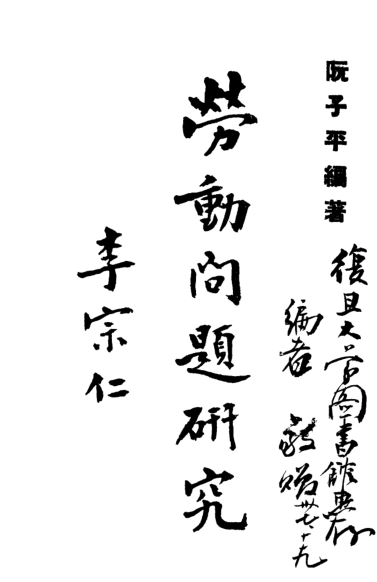 阮子平編著
復旦大学图書館惠存
編者 敬贈 卅七、十、九
勞動問題研究
李宗仁